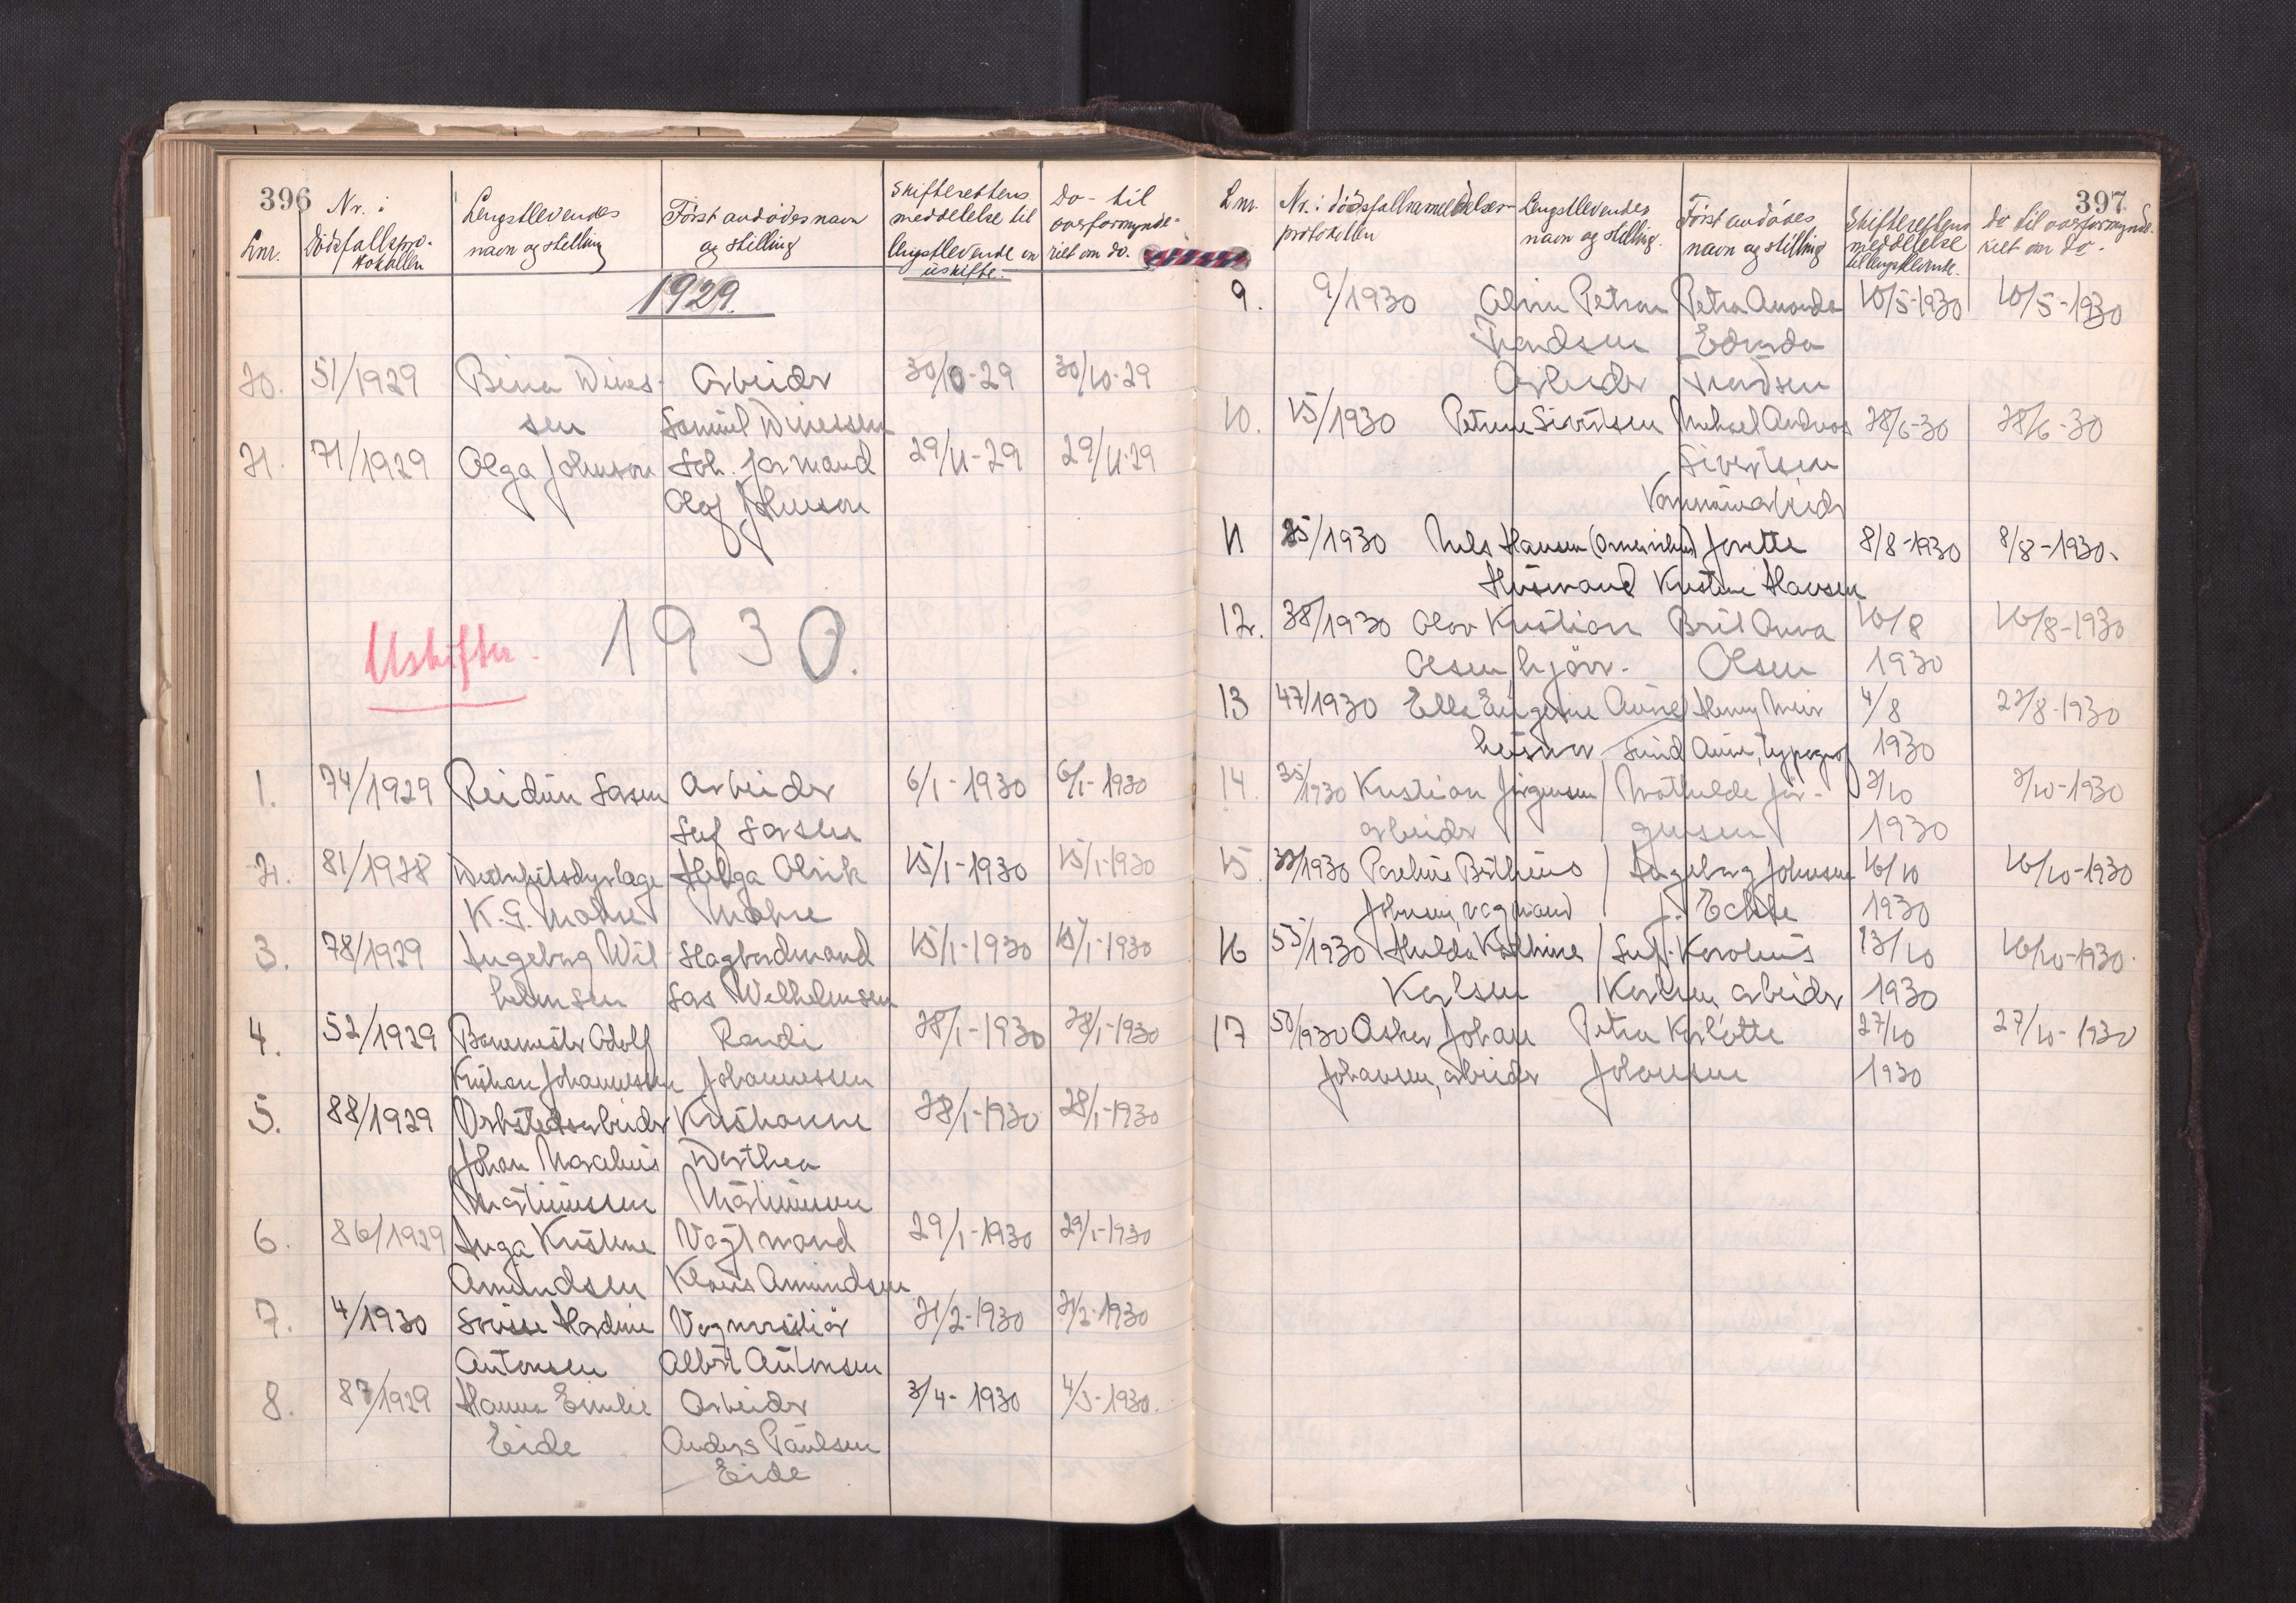 396
Lnr.
Nr. i
dödsfallspro-
tokollen
Lengstlevendes
navn og stilling
Först avdödes navn
og stilling
Skifterettens
meddelelse til
lengstlevende om
uskifte.
Do- til
overformynde-
riet om do.
1929.
20. 51/1929 Arbeider 30/10-29 30/10-29
sen
21. 71/1929 Olga Johnson formand 29/11-29 29/11-29
Olaf Johnson
Uskifter 1930.
1. 74/1929 Reidun Larsen Arbeider 6/1-1930 6/1-1930
Leif Larsen
2. 81/1928 Helga 15/1-1930 15/1-1930
K. G.
3. 78/1929 Ingeborg Wil- 15/1-1930 15/1-1930
helmsen Lars Wilhelmsen
4. 52/1929 Banemester Adolf Randi 28/1-1930 28/1-1930
Kristian Johannessen Johannessen
5. 88/1929 Verkstedsarbeider Kristianne 28/1-1930 28/1-1930
Johan Dorthea
Martinussen Martinussen
6. 86/1929 Inga Kristine Vagtmand 29/1-1930 29/1-1930
Amundsen Klaus Amundsen
7. 4/1930 21/2-1930 21/2-1930
Antonsen Albert Antonsen
8. 87/1929 Hanna Emilie Arbeider 3/4-1930 4/3-1930.
Eide Anders Paulsen
Eide
397
Lnr.
Nr. i dödsfallsanmeldelses-
protokollen
Lengstlevendes
navn og stilling.
Först avdödes
navn og stilling
Skifterettens
meddelelse
til lengstlevende.
do til overformynde-
riet om do-
9. 9/1930 Petra Amanda 10/5-1930 10/5-1930
Edvarda
Arbeider
10. 15/1930 Petrine Sivertsen Andreas 28/6-30 28/6-30
Sivertsen
Kommunearbeider
11 25/1930 Nils Hansen Jonette 8/8-1930 8/8-1930.
Husmand Kristine Hansen
12. 38/1930 Olav Kristian Brit Anna 16/8 16/8-1930
Olsen kjörr- Olsen 1930
13 47/1930 Ella Eugenie Aune Henry 4/8 22/8-1930
Aune, typograf 1930
14. 35/1930 Kristian Jörgensen Mathilde Jör- 2/10 2/10-1930
arbeider gensen 1930
15. Ingeborg Johnsen 16/10 16/10-1930
Johnsen, 1930
16 55/1930 Hulda Kathrine Karolius 13/10 16/10-1930.
Karlsen Karlsen, arbeider 1930
17 50/1930 Johan Petra Karlotte 27/10 27/10-1930
Johansen, arbeider Johansen 1930